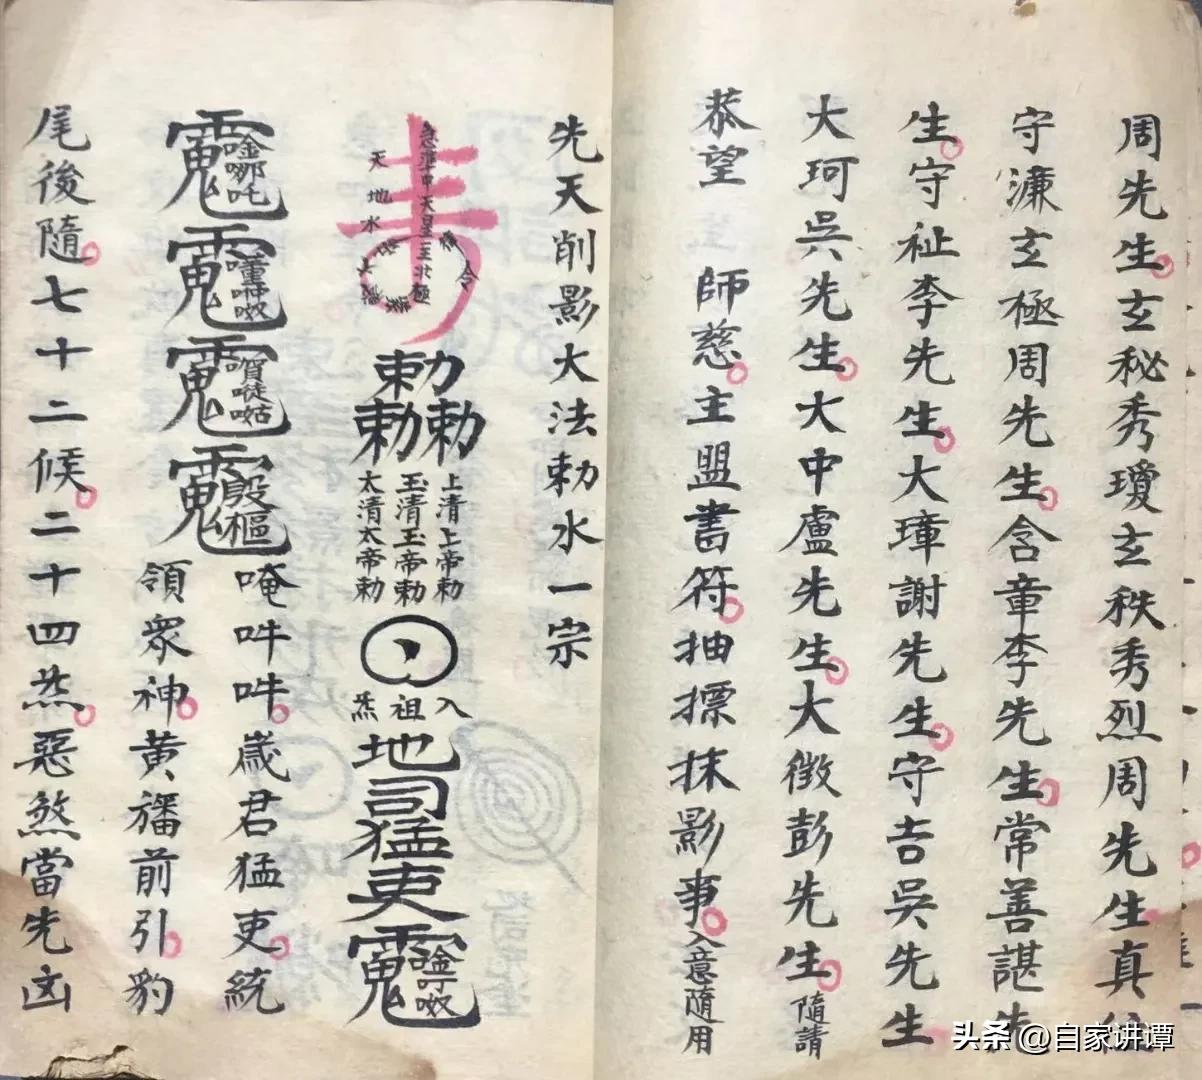 周先生玄秘秀瓊玄秩秀烈周先生真
守濂玄極周先生含章李先生常善諶先
生守祉李先生大璋謝先生守吉吳先生
大珂吳先生大中盧先生大徵彭先生隨請
恭望 師慈主盟書符抽摽抹影事入意隨用
先天削影大法勅水一宗
天地水
令
勅勅勅
上清上帝勅
玉清玉帝勅
太清太帝勅
入祖炁
地司猛吏
唵吽吽歲君猛吏統
領眾神黃旛前引豹
尾後隨七十二候二十四炁惡煞當先凶
头条 @自家讲谭